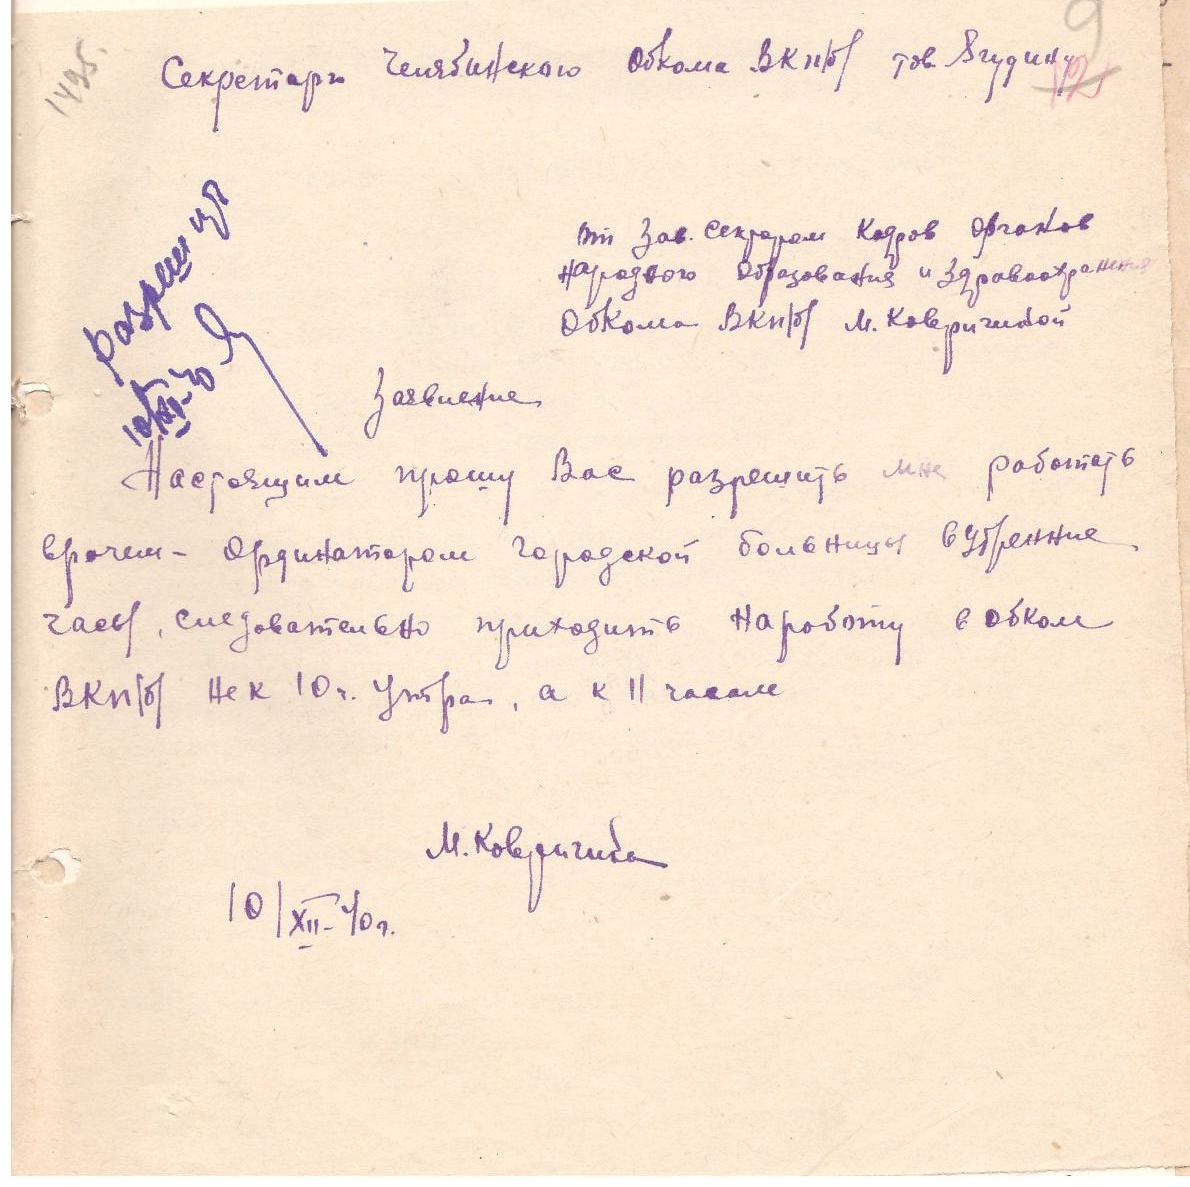 9
1495.
Секретарю Челябинского Обкома ВКП/б/ тов. Ягудину
разрешить
10/XII-40
от Зав. Сектором Кадров Органов
Народного Образования и Здравоохранения
Обкома ВКП/б/ М. Ковригиной
Заявление
Настоящим прошу Вас разрешить мне работать
врачем-ординатором городской больницы в утренние
часы, следовательно приходить на работу в обком
ВКП/б/ не к 10 ч. утра, а к 11 часам
М. Ковригина
10/XII-40 г.